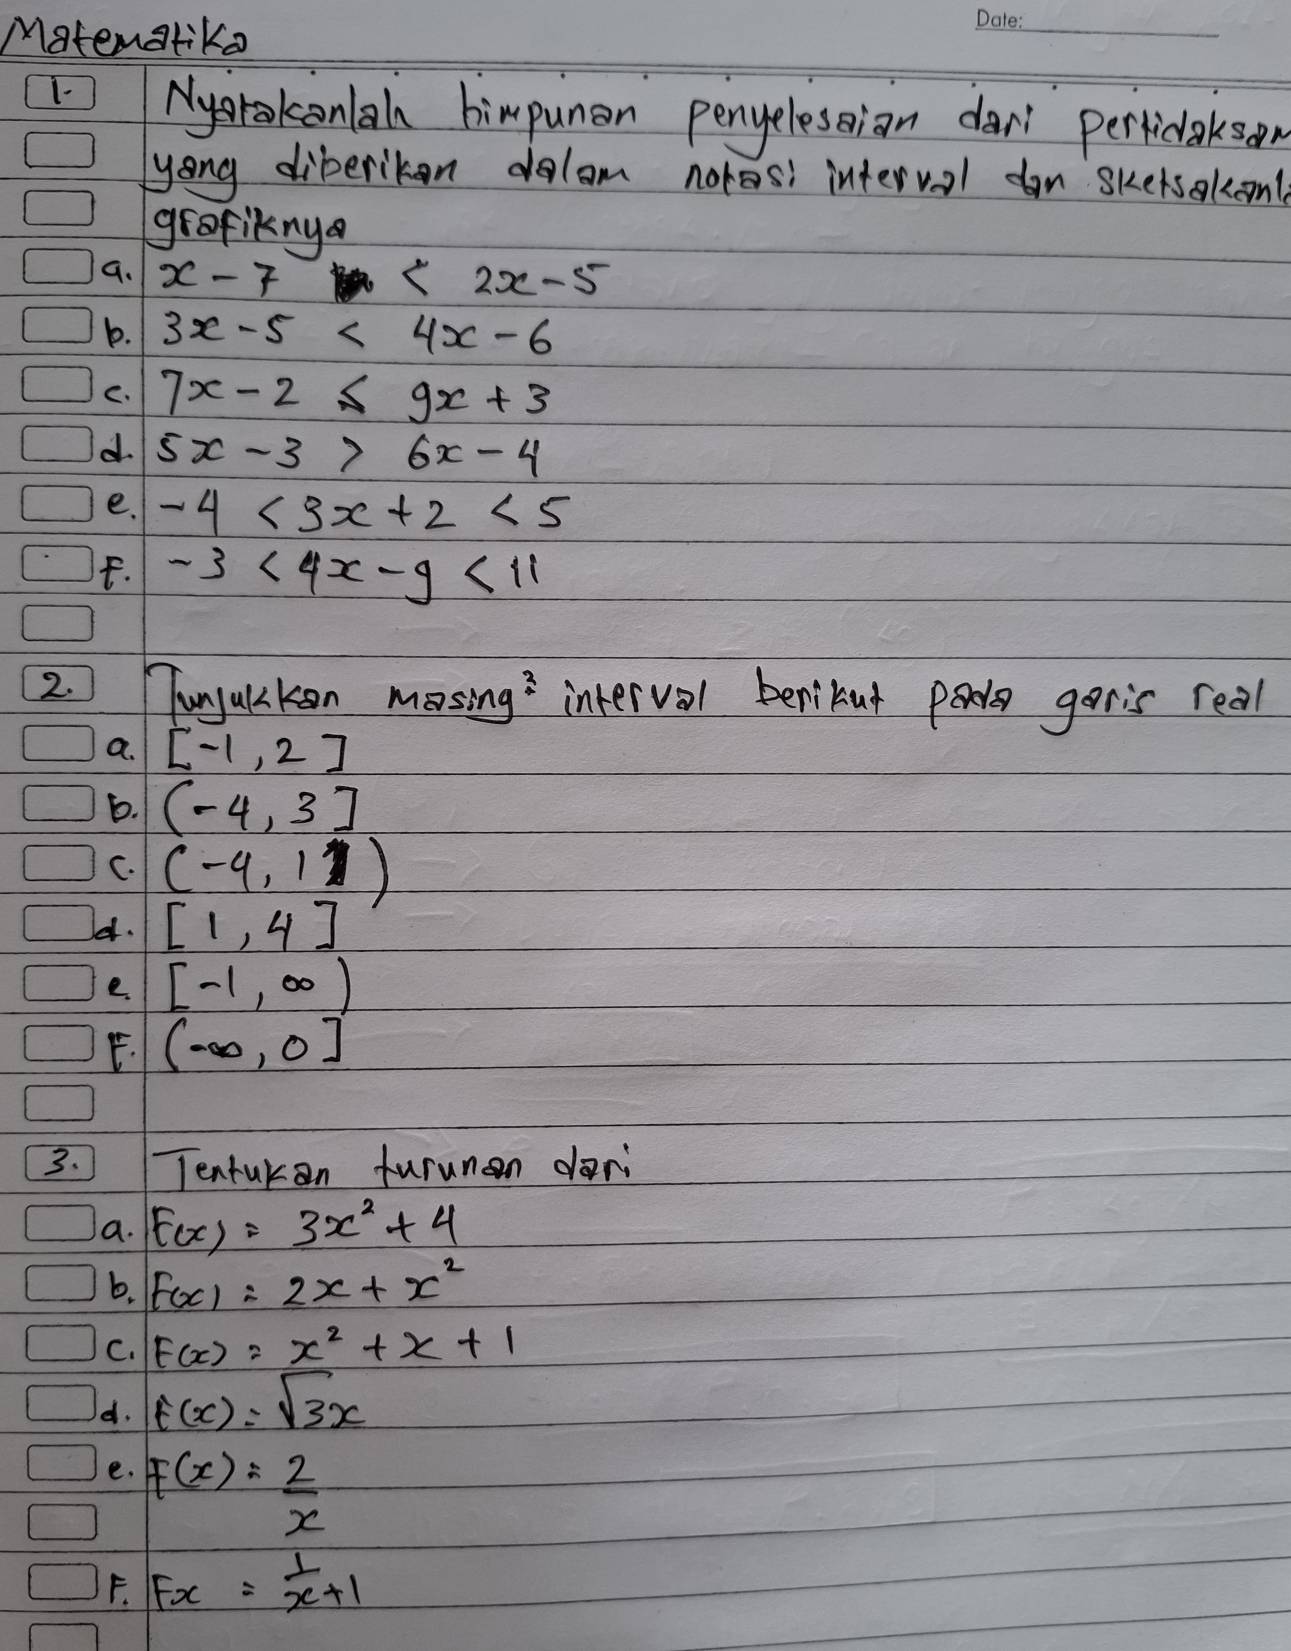 Date:
Matematika
1. Nyatakanlah himpunan penyelesaian dari pertidaksam
yang diberikan dalam notasi interval dan sketsakanl
grafiknya
a. x - 7 < 2x - 5
b. 3x - 5 < 4x - 6
c. 7x - 2 ≤ 9x + 3
d. 5x - 3 > 6x - 4
e. -4 < 3x + 2 < 5
F. -3 < 4x - 9 < 11
2. Tunjukkan masing² interval berikut pada garis real
a. [-1, 2]
b. (-4, 3]
c. (-4, 1)
d. [1, 4]
e. [-1, ∞)
F. (-∞, 0]
3. Tentukan turunan dari
a. F(x) = 3x² + 4
b. F(x) = 2x + x²
c. F(x) = x² + x + 1
d. F(x) = √3x
e. F(x) = 2/x
F. Fx = 1/x+1